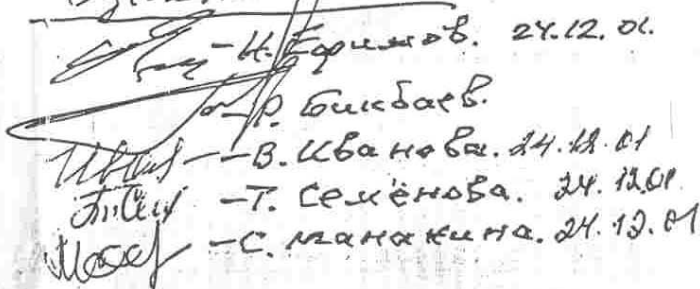 -Н. Ефимов. 24.12.01.
-Р. Бикбаев.
-В. Иванова. 24.12.01
-Т. Семёнова. 24.12.01.
-С. Манакина. 24.12.01